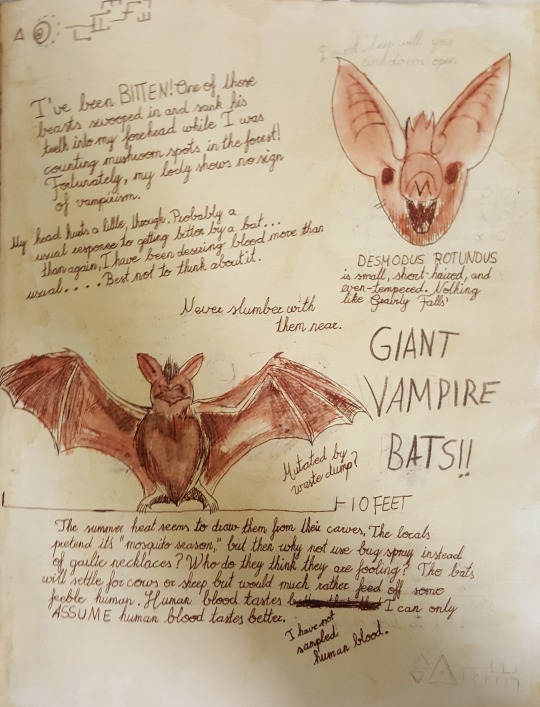 I've been BITTEN! One of those
beasts swooped in and sank his
teeth into my forehead while I was
counting mushroom spots in the forest!
Fortunately, my body shows no sign
of vampirism.
My head hurts a little, though. Probably a
usual response to getting bitten by a bat...
than again, I have been desiring blood more than
usual.... Best not to think about it.
sleep with you
windows open
DESMODUS ROTUNDUS
is small, short-haired, and
even-tempered. Nothing
like Gravity Falls'
Never slumber with
them near.
GIANT
VAMPIRE
BATS!!
Mutated by
waste dump?
10 FEET
The summer heat seems to draw them from their carves. The locals
pretend it's "mosquito season," but then why not use bug spray instead
of garlic necklaces? Who do they think they are fooling? The bats
will settle for cows or sheep but would much rather feed off some
feeble human. Human blood tastes I can only
ASSUME human blood tastes better.
I have not
sampled
human blood.